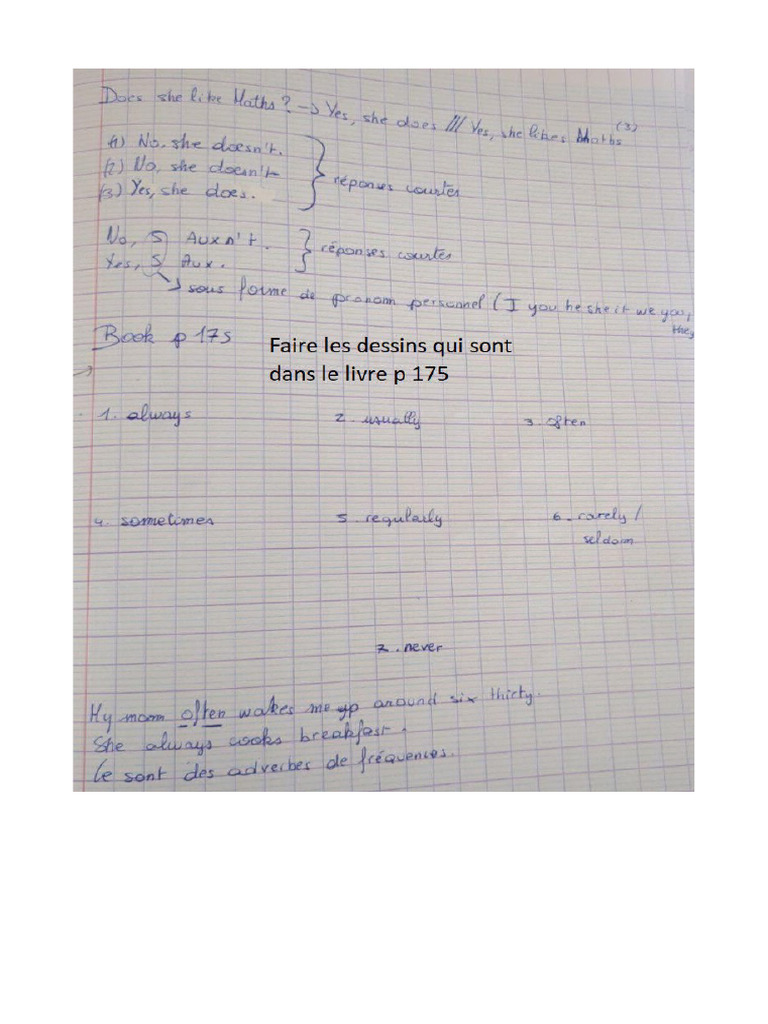 Does she like Maths? → Yes, she does /// Yes, she likes Maths (3)
(1) No, she doesn't.
(2) No, she doesn't
(3) Yes, she does.
réponses courtes
No, S Aux n't.
Yes, S Aux.
réponses courtes
→ sous forme de pronom personnel (I you he she it we you, they
Book p 175
Faire les dessins qui sont
dans le livre p 175
1. always 2. usually 3. often
4. sometimes 5. regularly 6. rarely /
seldom
7. never
My mom often wakes me up around six thirty.
She always cooks breakfast.
Ce sont des adverbes de fréquences.